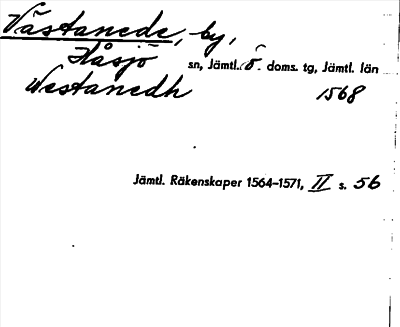 Västanede, by,
Håsjö sn, Jämtl. ö. doms. tg, Jämtl. län
Westanedh 1568
Jämtl. Räkenskaper 1564-1571, II s. 56